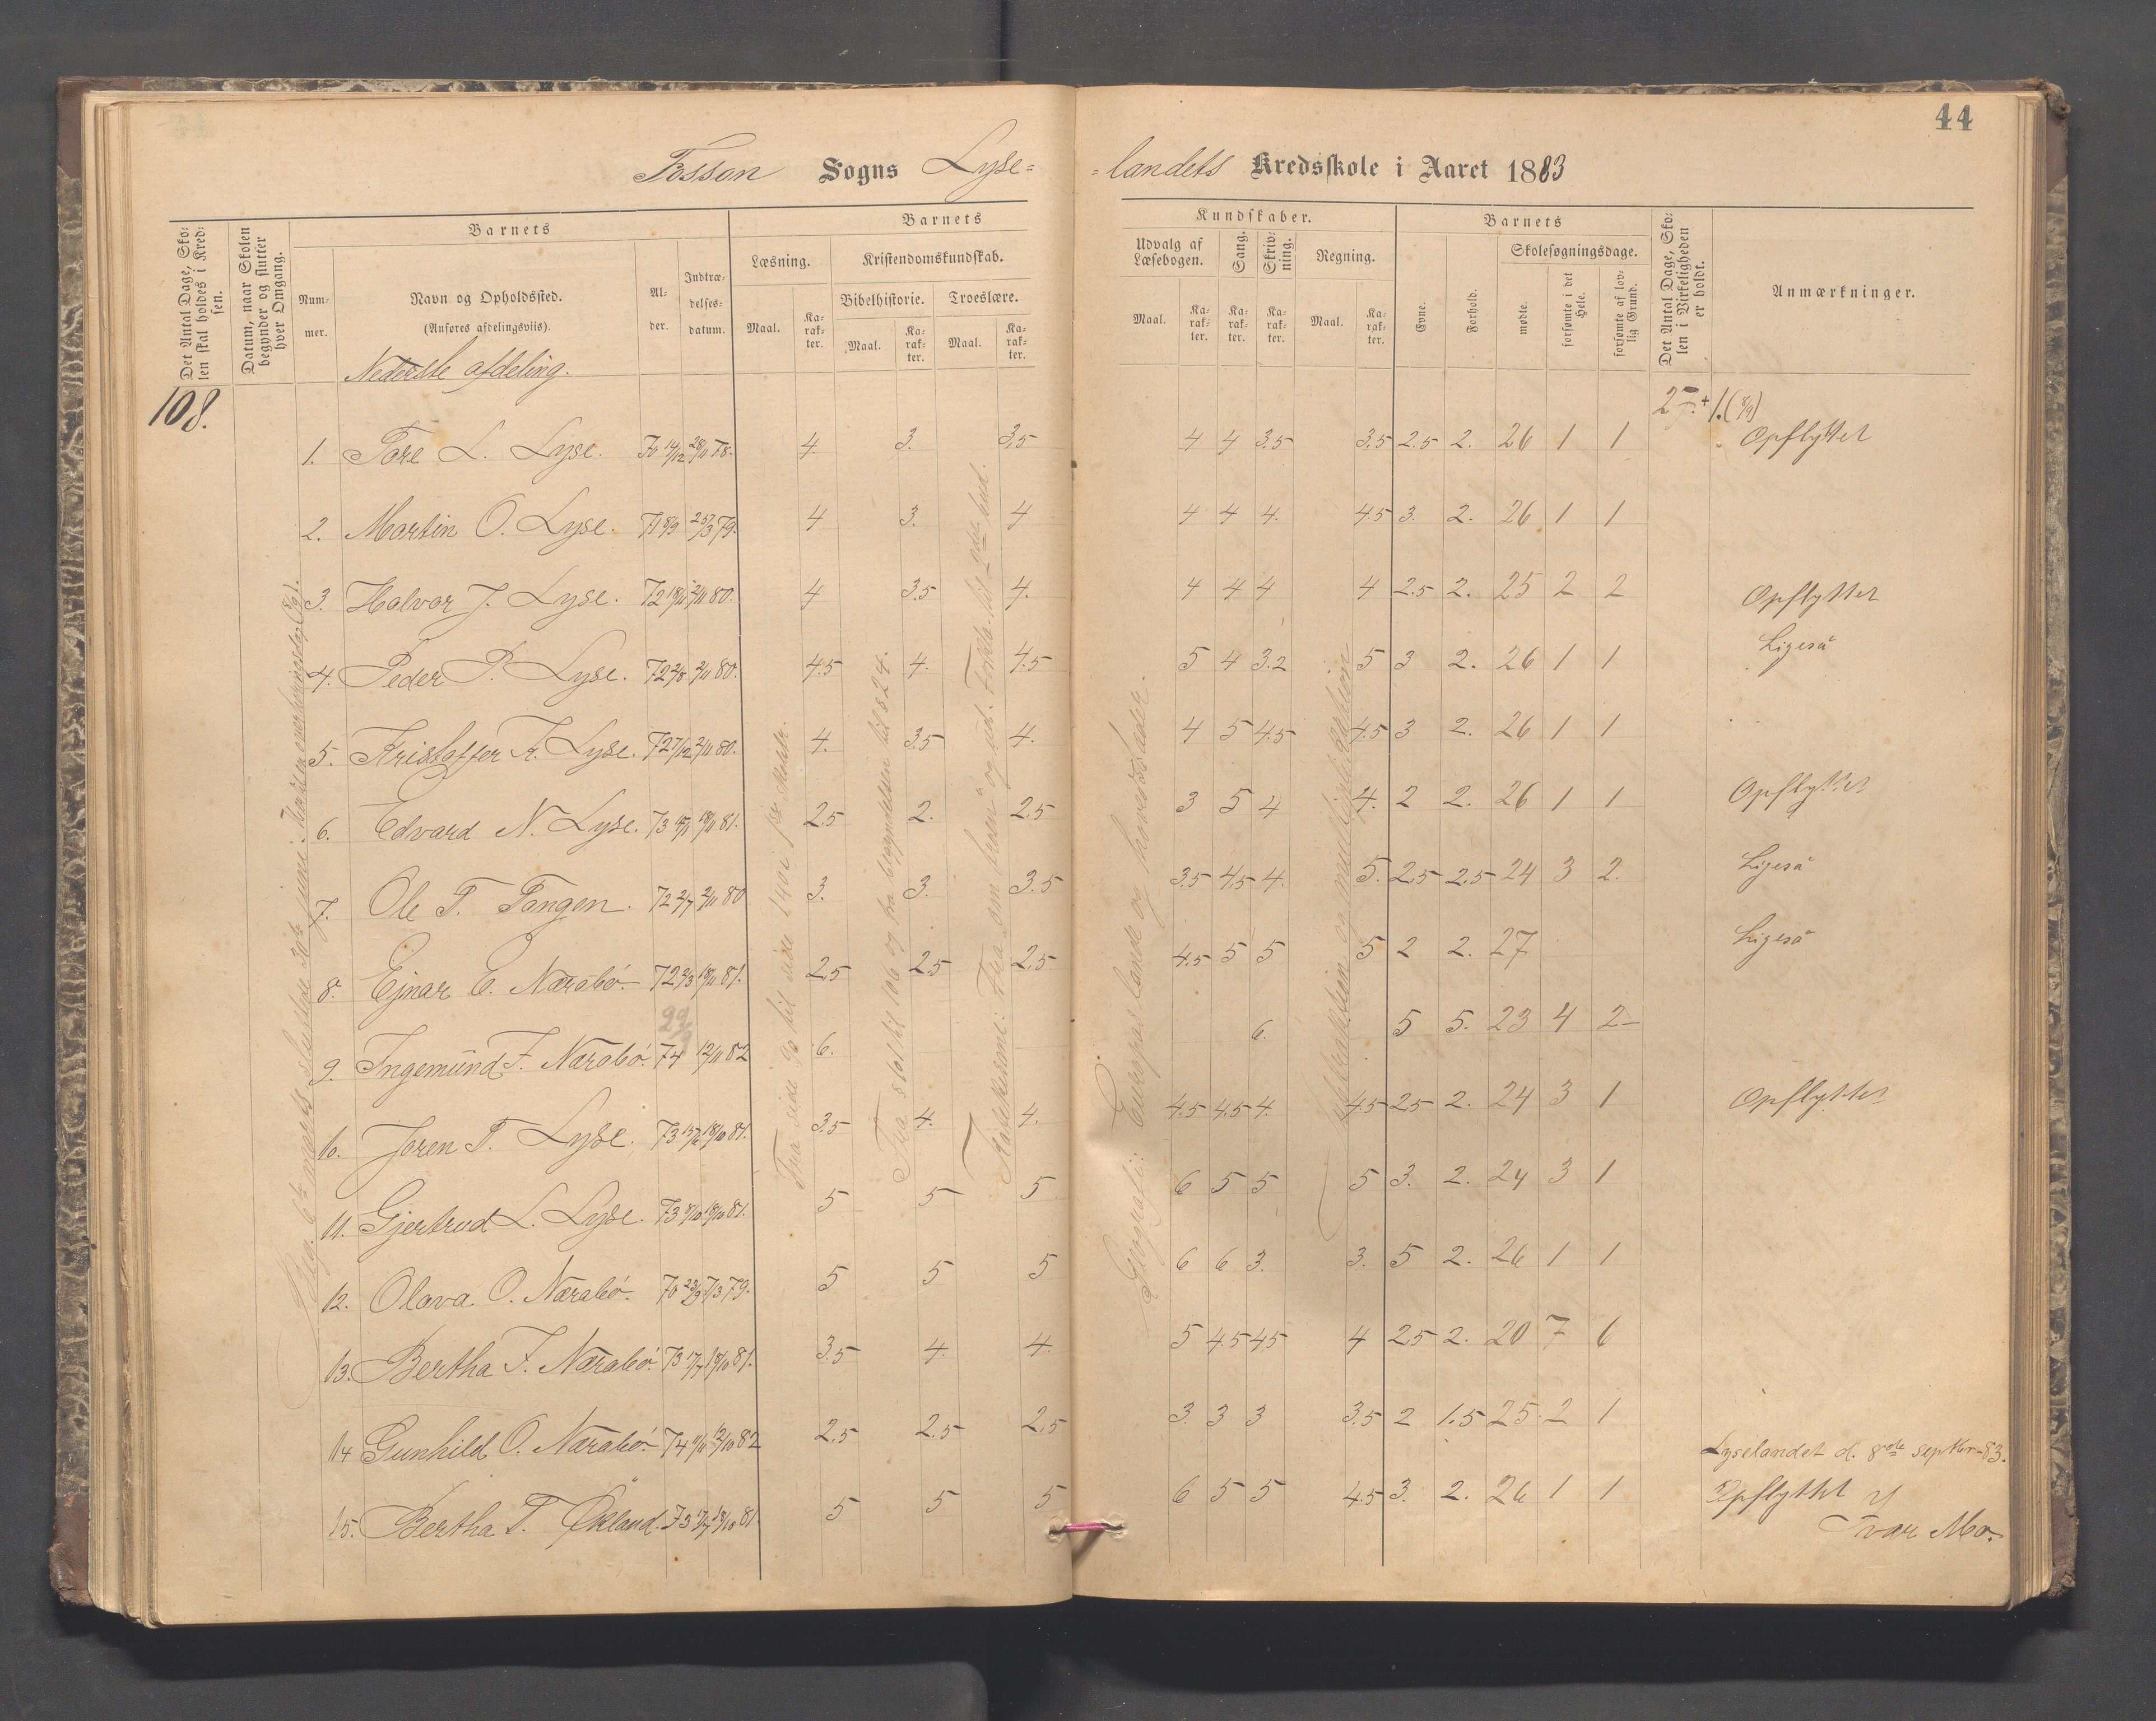 44
Fossan Sogns Lyse=
=landets Kredsskole i Aaret 1883
Det Antal Dage, Skolen skal holdes i Kredsen.
Datum, naar Skolen begynder og slutter hver Omgang.
Barnets
Nummer.
Navn og Opholdssted.
(Anføres afdelingsviis).
Alder.
Indtrædelsesdatum.
Barnets
Læsning.
Kristendomskundskab.
Bibelhistorie.
Troeslære.
Maal.
Karakter.
Maal.
Karakter.
Maal.
Karakter.
Kundskaber.
Udvalg af Læsebogen.
Sang.
Skrivning.
Regning.
Maal.
Karakter.
Karakter.
Karakter.
Maal.
Karakter.
Barnets
Evne.
Forhold.
Skolesøgningsdage.
mødte.
forsømte i det Hele.
forsømte af lovlig Grund.
Det Antal Dage, Skolen i Virkeligheden er holdt.
Anmærkninger.
Nederste afdeling.
108.
27.+1.(8/9)
1. Tore L. Lyse. 70 14/12 28/11 78. 4. 3. 3.5 4 4 3.5 3.5 2.5 2. 26 1 1 Opflyttet
2. Martin O. Lyse. 71 8/9 25/3 79. 4 3. 4 4 4 4. 4.5 3. 2. 26 1 1
3. Halvor J. Lyse. 72 18/11 2/11 80. 4 3.5 4. 4 4 4 4 2.5 2. 25 2 2 Opflyttet
4. Peder P. Lyse. 72 2/8 2/11 80. 4.5 4. 4.5 5 4 3.2 5 3 2. 26 1 1 Ligeså
5. Kristoffer Tr. Lyse. 72 7/12 2/11 80. 4. 3.5 4. 4 5 4.5 4.5 3 2. 26 1 1
6. Edvard N. Lyse. 73 18/11 81. 2.5 2. 2.5 3 5 4 4. 2 2. 26 1 1 Opflyttet
7. Ole T. Tangen. 72 2/7 2/11 80 3. 3. 3.5 3.5 4.5 4. 5. 2.5 2.5 24 3 2. Ligeså
8. Ejnar E. Nærabö. 72 2/3 18/11 81. 2.5 2.5 2.5 4.5 5 5 5 2 2. 27 Ligeså
9. Ingemund F. Nærabö. 74 12/11 82 6. 6. 5 5. 23 4 2
10. Joren T. Lyse. 73 15/6 18/10 81. 3.5 4. 4. 4.5 4.5 4. 4.5 2.5 2. 24 3 1 Opflyttet
11. Gjertrud L. Lyse. 73 8/10 18/10 81. 5 5 5 6 5 5 5 3. 2. 24 3 1
12. Olava O. Nærabö. 70 23/9 7/3 79. 5 5 5 6 6 3. 3. 5 2. 26 1 1
13. Bertha F. Nærabö. 73 17/7 18/10 81. 3.5 4. 4. 5 4.5 4.5 4 2.5 2. 20 7 6
14 Gunhild O. Nærabö. 74 11/11 12/10 82 2.5 2.5 2.5 3. 3 3 3.5 2 1.5 25 2 1
Lyselandet d. 8de septbr-83.
15. Bertha T. Økland. 73 17/7 18/10 81. 5 5 5 6 5 5 4.5 3. 2. 26 1 1 Opflyttet
Ivar Mo.
Fra side 90 til side 140 i 1ste skoletr.
Fra § 101 til 106 og fra begyndelsen til § 24.
Geografi: Europas lande og hovedstæder.